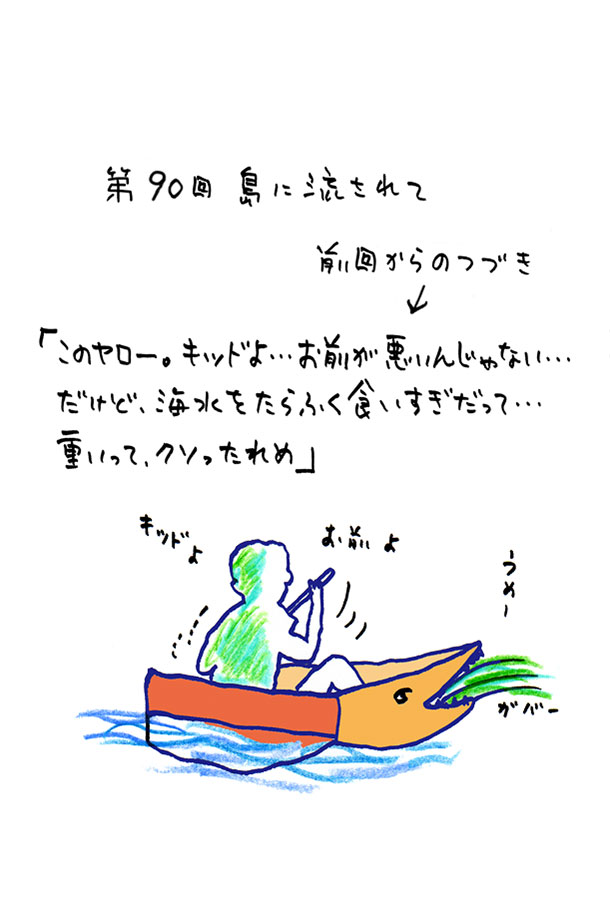 第90回 島に流されて
前回からのつづき
「このヤロー。キッドよ…お前が悪いんじゃない…
だけど、海水をたらふく食いすぎだって…
重いって、クソったれめ」
キッドよ
お前よ
うめー
ガバー